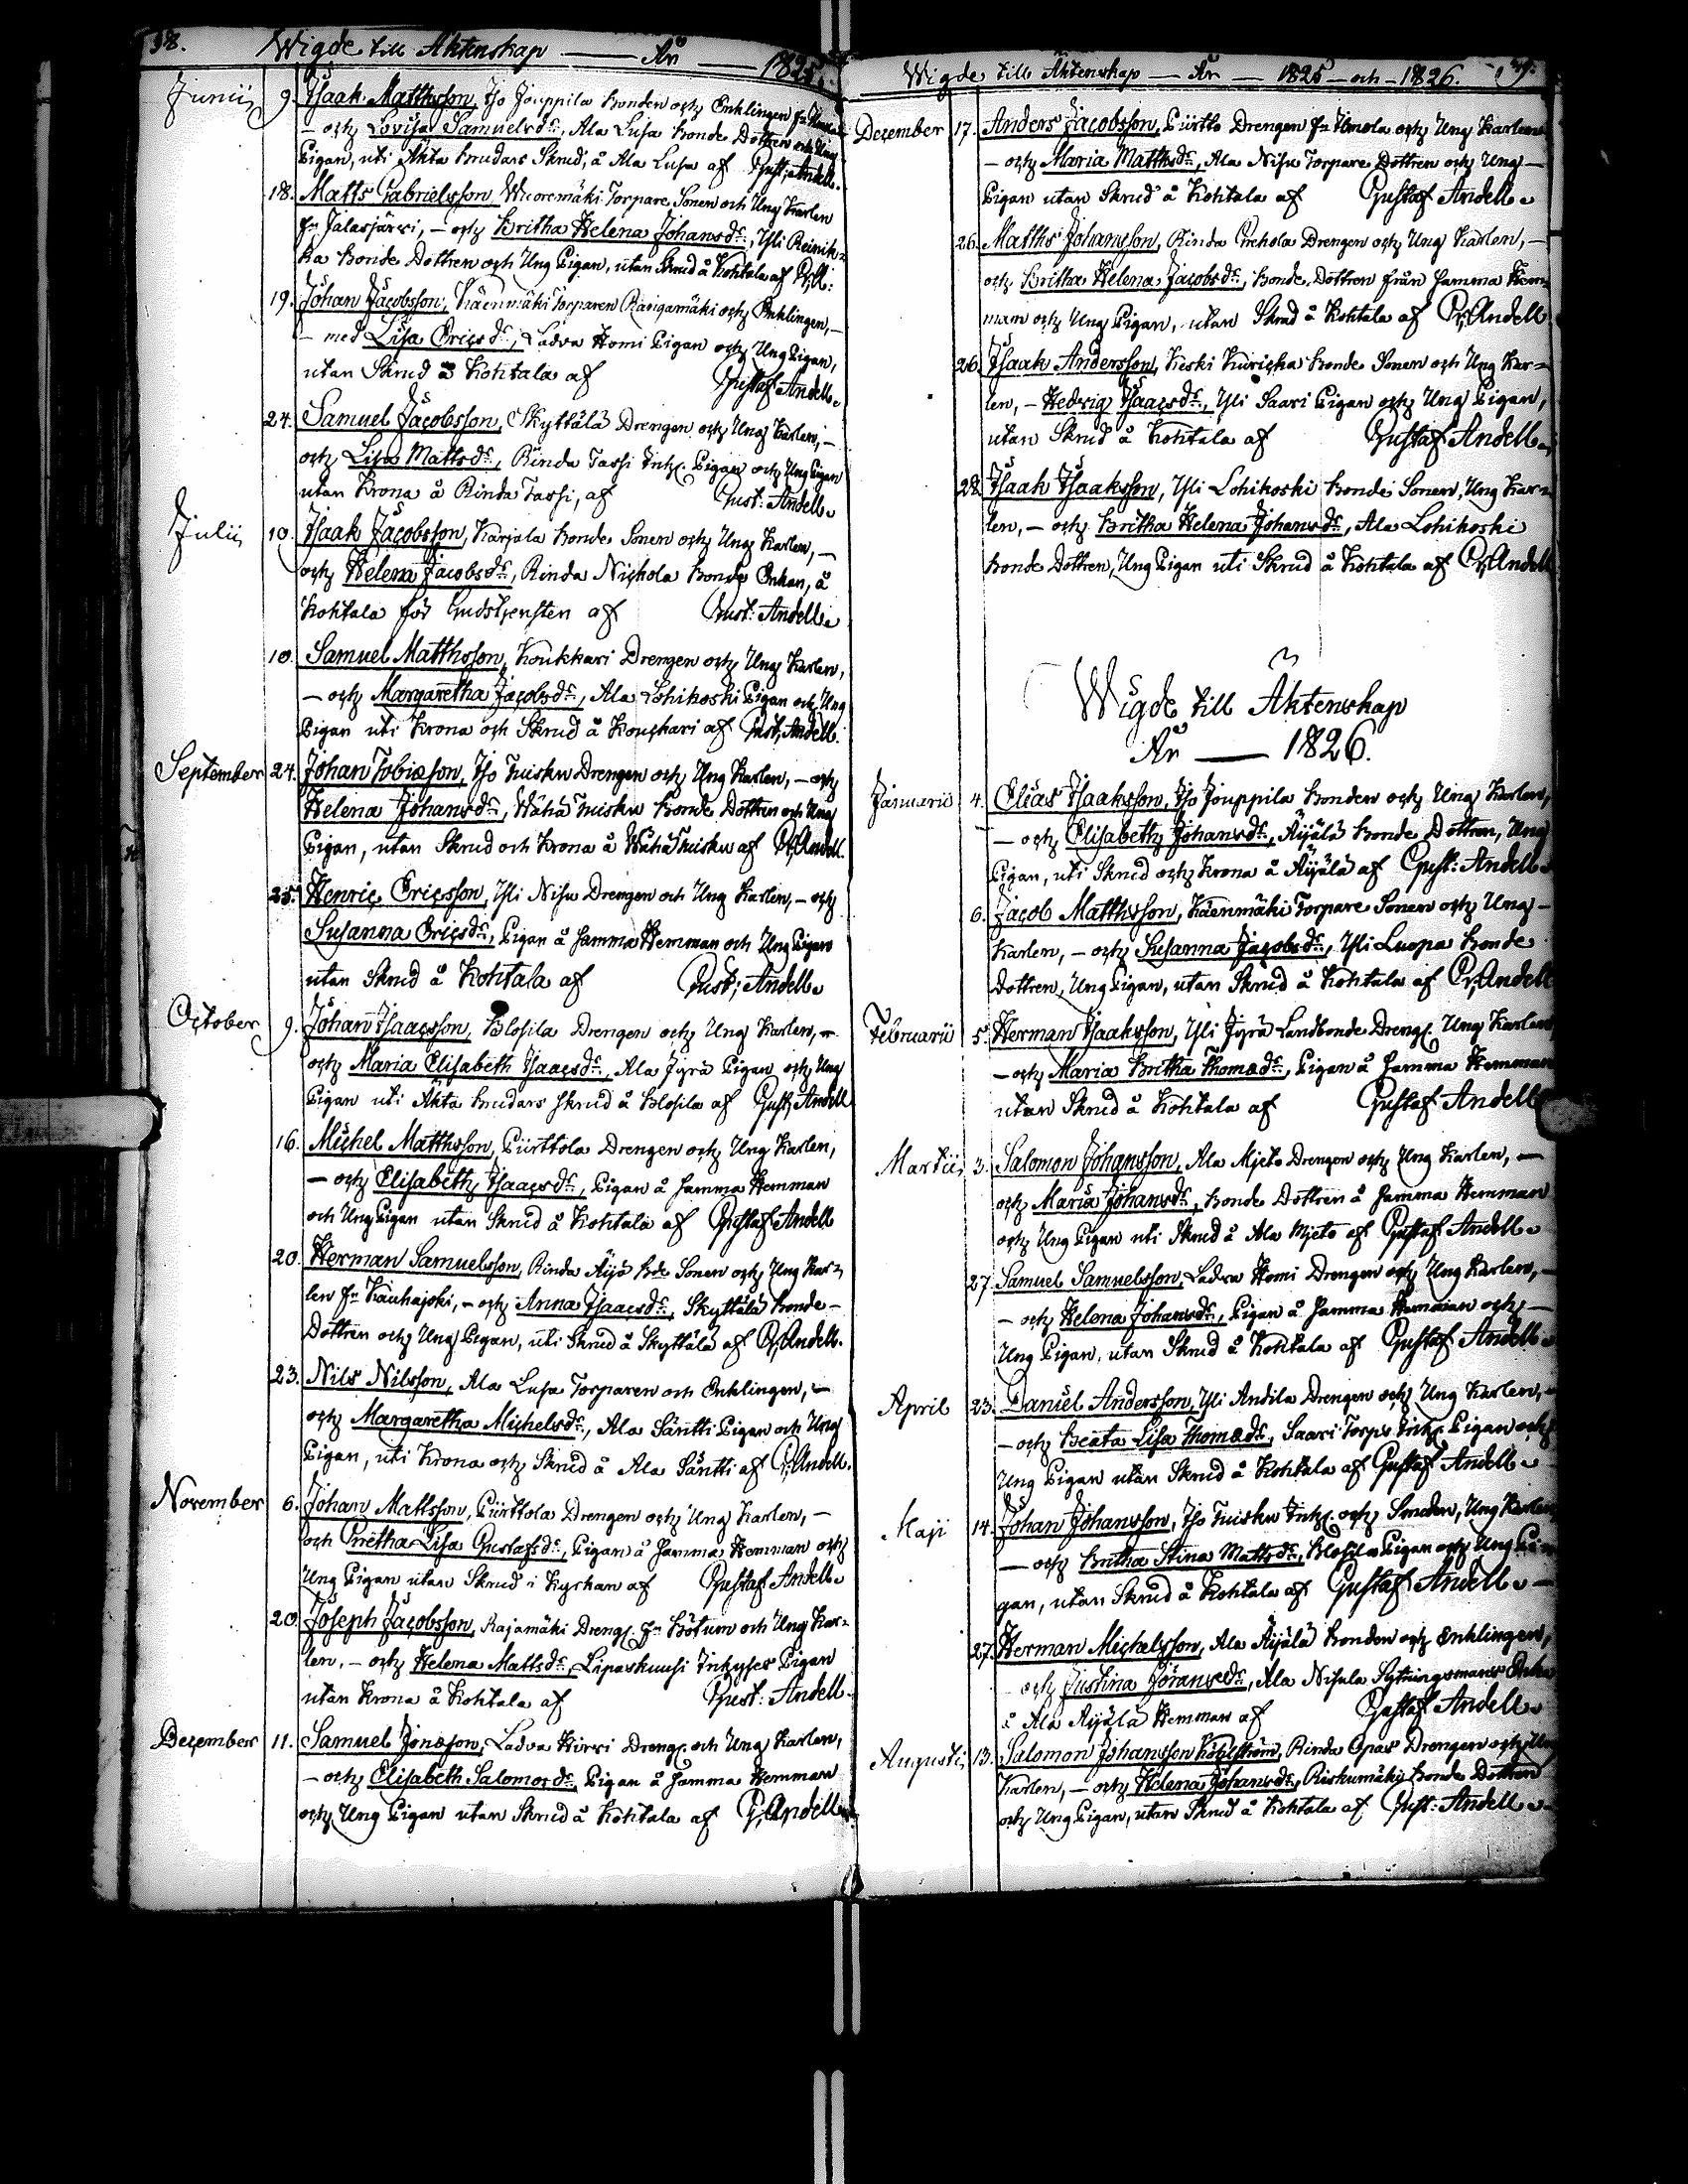 38. Wigde till Äktenskap — År — 1825.
Junii 9. Isaak Matthsson, Iso Jouppila bonden och Enklingen fr
— och Lovisa Samuelsdr, Ala Lusa bonde Dottren och Ung
Pigan, uti Äkta brudars Skrud, å Ala Lusa af Gust: Andell.
18. Matts Gabrielsson Wuoremäki Torpare Sonen och Ung Karlen
fr Jalasjärvi, — och Britha Helena Johansdr, Yli Reinik=
ka bonde Dottren och Ung Pigan, utan Skrud å Kohtala af G,A:
19. Johan Jacobsson, Käenmäki Torparen och Enklingen, —
— med Lisa Ericsdr, Ladva Homi Pigan och Ung Pigan,
utan Skrud å Kohtala af Gustaf Andell.
24. Samuel Jacobsson, Skyttälä Drengen och Ung Karlen, —
och Lisa Mattsdr, Rinda Tassi Inh: Pigan och Ung Pigan
utan Krona å Rinda Tassi, af Gust: Andell.
Julii 10. Isaak Jacobsson, Karjala bonde Sonen och Ung Karlen, —
och Helena Jacobsdr, Rinda Nichola bonde Enkan, å
Kohtala för Gudstjensten af Gust: Andell.
10. Samuel Matthsson, Koukkari Drengen och Ung Karlen,
— och Margaretha Jacobsdr, Ala Lohikoski Pigan och Ung
Pigan uti Krona och Skrud å Kouckari af Gust, Andell.
September 24. Johan Tobiæson, Iso Tuisku Drengen och Ung Karlen, — och
Helena Johansdr, Wähä Tuisku bonde Dottren och Ung
Pigan, utan Skrud och Krona å Wähä Tuisku af G,Andell.
25. Henric Ericsson, Yli Nisu Drengen och Ung Karlen, — och
Susanna Ericsdr, Pigan å samma Hemman och Ung Pigan
utan Skrud å Kohtala af Gust; Andell.
October 9. Johan Isaacsson, Blosila Drengen och Ung Karlen, —
och Maria Elisabeth Isaacsdr, Ala Jyrä Pigan och Ung
Pigan uti Äkta brudars skrud å Blosila af Gust, Andell
16. Michel Matthsson, Piirttola Drengen och Ung Karlen,
— och Elisabeth Isaacsdr, Pigan å samma Hemman
och Ung Pigan utan Skrud å Kohtala af Gustaf Andell
20. Herman Samuelsson, Rinda Äijö bde Sonen och Ung Kar=
len fr Kauhajoki, — och Anna Isaacsdr, Skyttälä bonde —
Dottren och Ung Pigan, uti Skrud å Skyttälä af G,Andell.
23. Nils Nilsson, Ala Lusa Torparen och Enklingen, —
och Margaretha Michelsdr, Ala Säntti Pigan och Ung
Pigan, uti Krona och Skrud å Ala Säntti af G,Andell.
November 6. Johan Mattsson, Piirttola Drengen och Ung Karlen, —
och Gretha Lisa Gustafsdr, Pigan å samma Hemman och
Ung Pigan utan Skrud i Kyrkan af Gustaf Andell.
20. Joseph Jacobsson, Rajamäki Dreng: fr Bötum och Ung Kar=
len, — och Helena Mattsdr, Liparkuusi Inhyses Pigan
utan Krona å Kohtala af Gust: Andell.
December 11. Samuel Jonæson, Ladva Hirvi Dreng: och Ung Karlen,
— och Elisabeth Salomosdr Pigan å samma Hemman
och Ung Pigan utan Skrud å Kohtala af G,Andell
Wigde till Äktenskap — År — 1825 — och — 1826. 39.
December 17. Anders Jacobsson, Piirtto Drengen fr Ilmola och Ung Karlen
— och Maria Matthsdr, Ala Nisu Torpare Dottren och Ung —
Pigan utan Skrud å Kohtala af Gustaf Andell.
26. Matths Johansson, Rinda Drengen och Ung Karlen, —
och Britha Helena Jacobsdr, bonde Dottren från samma Hem=
man och Ung Pigan, utan Skrud å Kohtala af G,Andell
26. Isaak Andersson, Kieski Kuricka bonde Sonen och Ung Kar=
len, — Hedvig Isaacsdr, Yli Saari Pigan och Ung Pigan,
utan Skrud å Kohtala af Gustaf Andell.
28. Isaak Isaaksson, Yli Lohikoski bonde Sonen, Ung Kar=
len, — och Britha Helena Johansdr, Ala Lohikoski
bonde Dottren, Ung Pigan uti Skrud å Kohtala af G,Andell
Wigde till Äktenskap
År — 1826.
Januarii 4. Elias Isaaksson, Iso Jouppila bonden och Ung Karlen,
— och Elisabeth Johansdr, Äijälä bonde Dottren, Ung
Pigan, uti Skrud och Krona å Äijälä af Gust: Andell.
6. Jacob Matthsson, Käenmäki Torpare Sonen och Ung —
Karlen, — och Susanna Jacobsdr, Yli Luopa bonde
Dottren, Ung Pigan, utan Skrud å Kohtala af G,Andell
Februarii 5. Herman Isaaksson, Yli Jyrä Landbonde Dreng: Ung Karlen
— och Maria Britha Thomædr, Pigan å samma Hemman
utan Skrud å Kohtala af Gustaf Andell
Martii 3. Salomon Johansson, Ala Mjeto Drengen och Ung Karlen, —
och Maria Johansdr, bonde Dottren å samma Hemman
och Ung Pigan uti Skrud å Ala Mjeto af Gustaf Andell.
27. Samuel Samuelsson, Ladva Homi Drengen och Ung Karlen, —
— och Helena Johansdr, Pigan å samma Hemman och —
Ung Pigan, utan Skrud å Kohtala af Gustaf Andell.
April 23. Daniel Andersson, Yli Andila Drengen och Ung Karlen, —
— och Beata Lisa Thomædr, Saari Torps Inh: Pigan och
Ung Pigan utan Skrud å Kohtala af Gustaf Andell.
Maji 14. Johan Johansson, Iso Tuisku Inh: och Smeden, Ung Karlen
— och Britha Stina Mattsdr, Blosila Pigan och Ung Pi=
gan, utan Skrud å Kohtala af Gustaf Andell. —
27. Herman Michelsson, Ala Äijälä bonden och Enklingen,
och Justina Jöransdr, Ala Nisula Sytningsmans Enka
å Ala Äijälä Hemman af Gustaf Andell.
Augusti 13. Salomon Johansson Rinda Opas Drengen och Un
Karlen, — och Helena Johansdr, Riskumäki bonde Dottren
och Ung Pigan, utan Skrud å Kohtala af Gust: Andell.